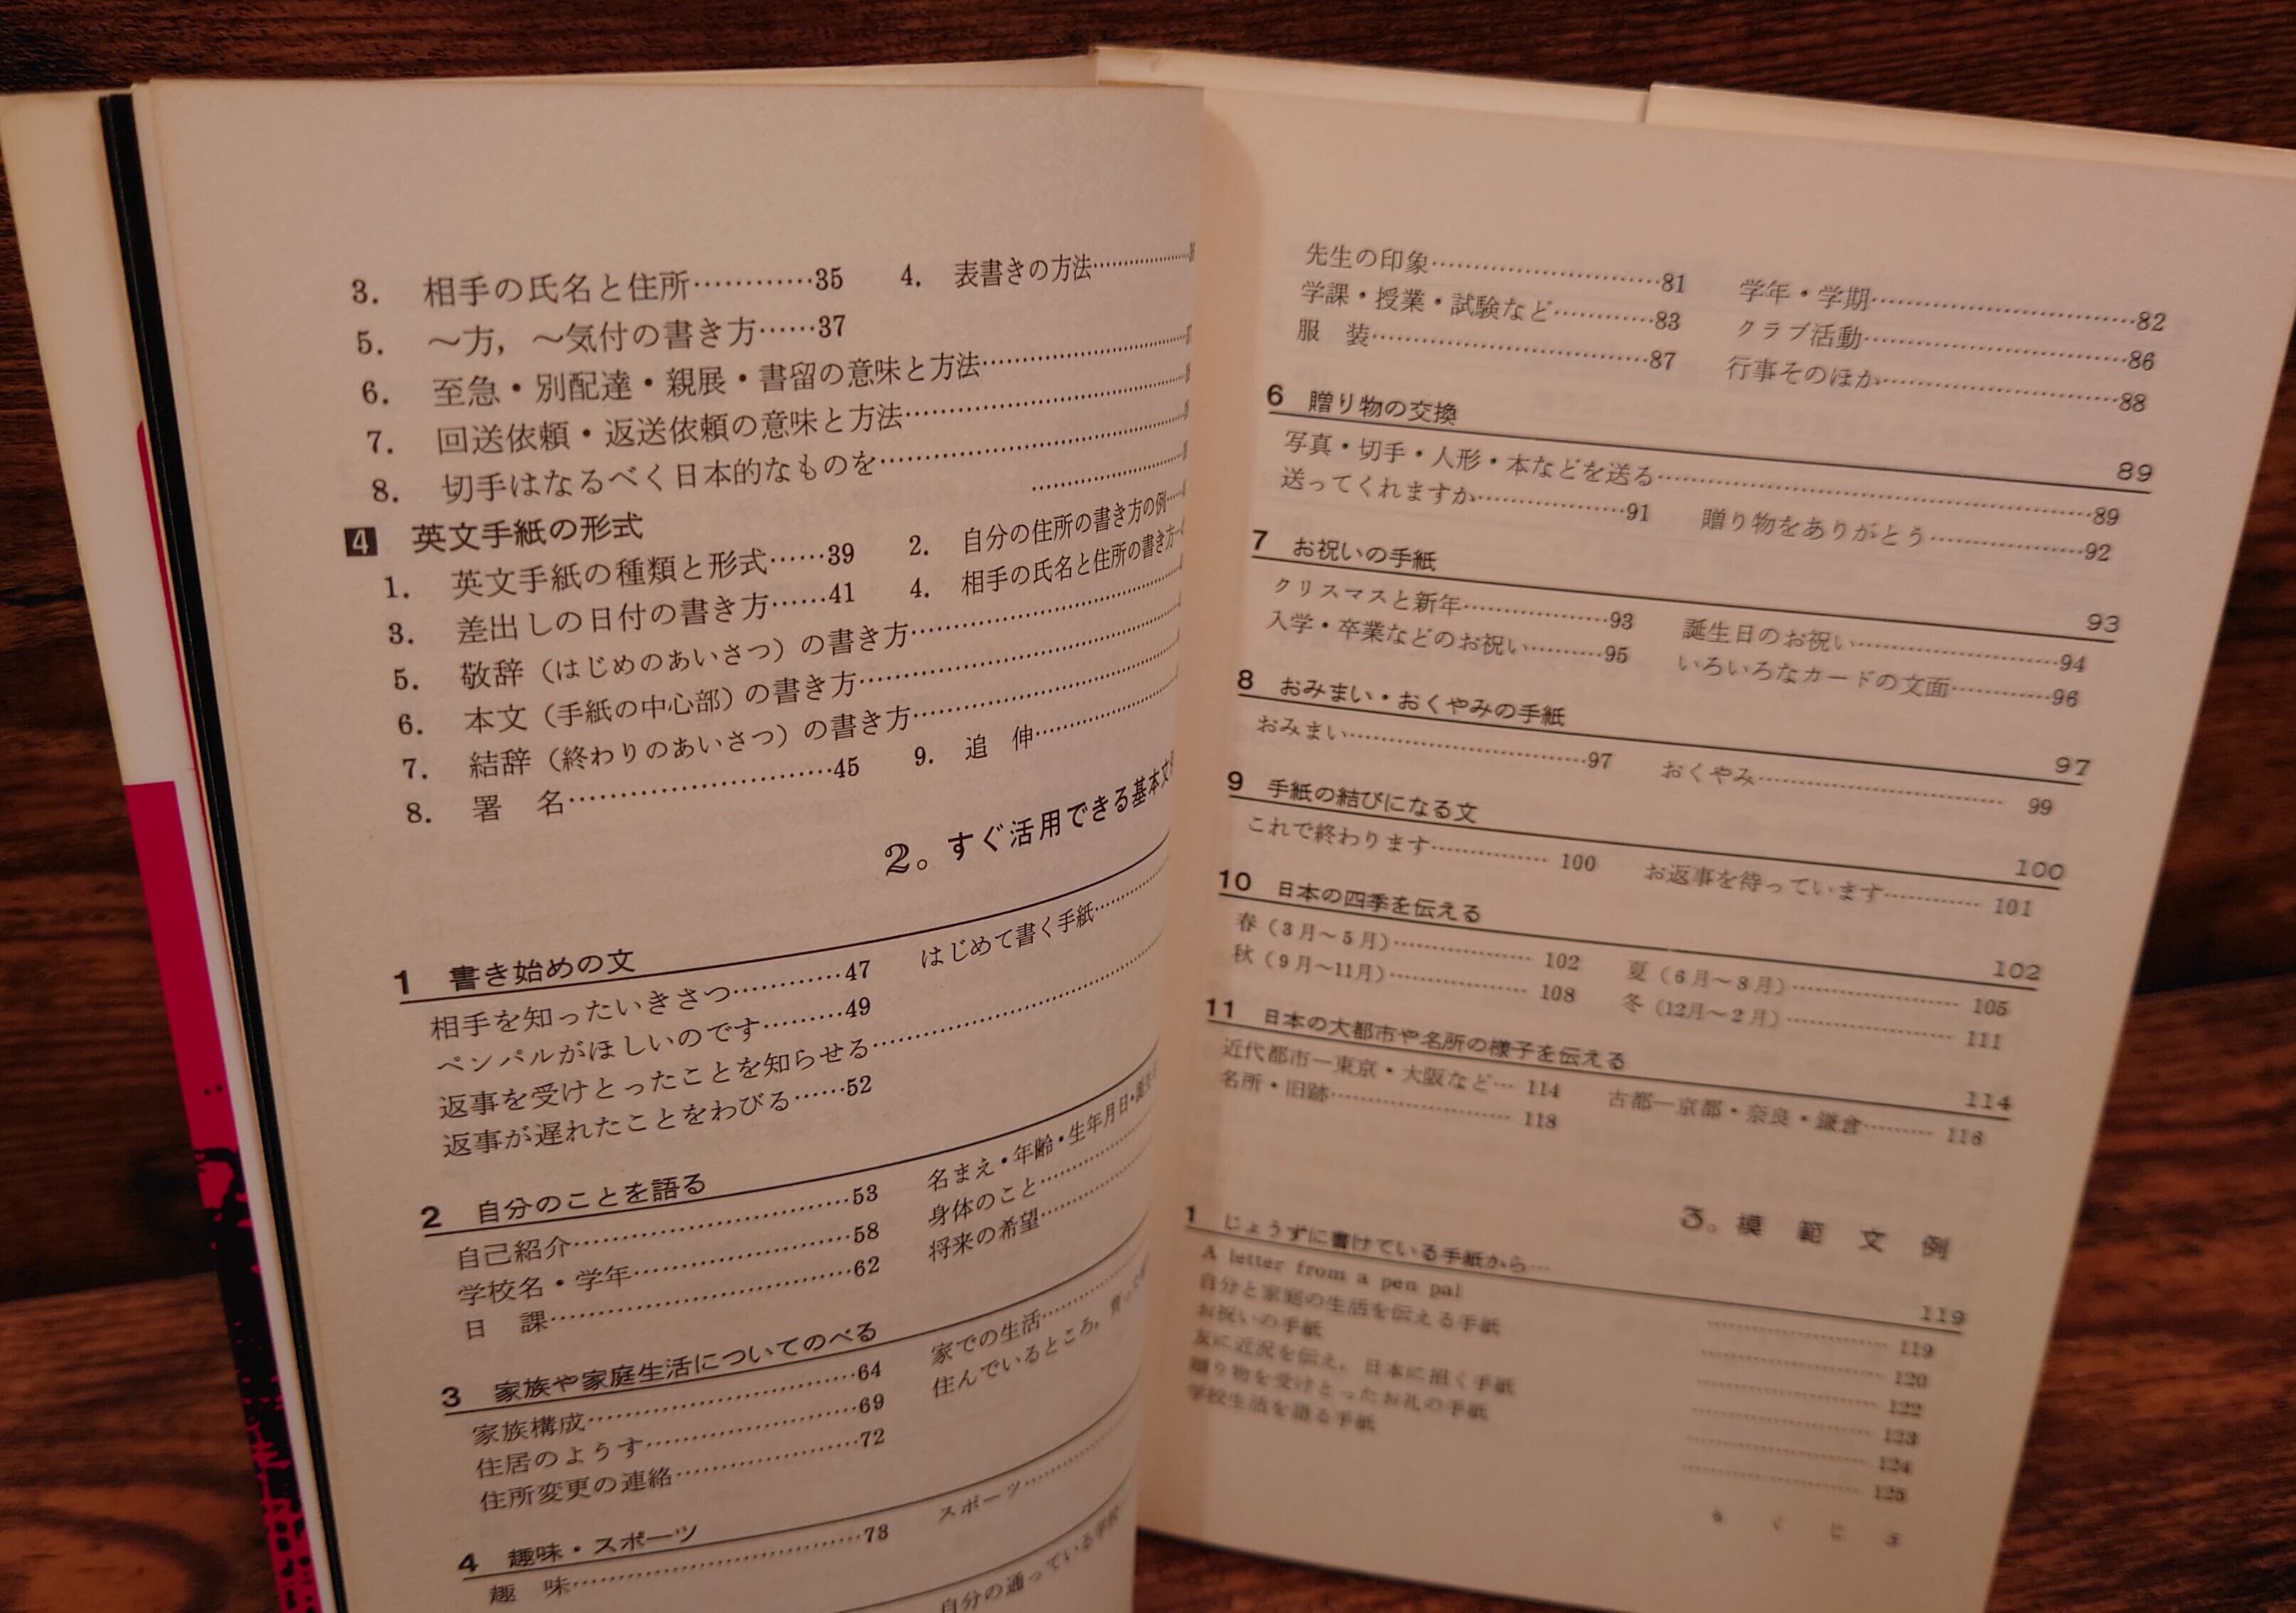 3. 相手の氏名と住所…………35 4. 表書きの方法………………
5. ～方，～気付の書き方……37
6. 至急・別配達・親展・書留の意味と方法………………
7. 回送依頼・返送依頼の意味と方法………………
8. 切手はなるべく日本的なものを………………
4 英文手紙の形式………………
1. 英文手紙の種類と形式……39 2. 自分の住所の書き方の例……
3. 差出しの日付の書き方……41 4. 相手の氏名と住所の書き方…
5. 敬辞（はじめのあいさつ）の書き方………………
6. 本文（手紙の中心部）の書き方………………
7. 結辞（終わりのあいさつ）の書き方………………
8. 署 名………………………45 9. 追 伸………………
2。すぐ活用できる基本文
1 書き始めの文
相手を知ったいきさつ…………47 はじめて書く手紙…………
ペンパルがほしいのです………49
返事を受けとったことを知らせる………………
返事が遅れたことをわびる……52
2 自分のことを語る
自己紹介………………………53 名まえ・年齢・生年月日・
学校名・学年…………………58 身体のこと…………
日 課…………………………62 将来の希望…………
3 家族や家庭生活についてのべる
家族構成………………………64 家での生活…………
住居のようす…………………69 住んでいるところ，育った
住所変更の連絡………………72
4 趣味・スポーツ
趣 味…………………………73 スポーツ…………
自分の通っている学校…
先生の印象………………………81 学年・学期………………………82
学課・授業・試験など…………83 クラブ活動………………………86
服 装……………………………87 行事そのほか……………………88
6 贈り物の交換 89
写真・切手・人形・本などを送る………………………………89
送ってくれますか………………91 贈り物をありがとう……………92
7 お祝いの手紙 93
クリスマスと新年………………93 誕生日のお祝い…………………94
入学・卒業などのお祝い………95 いろいろなカードの文面………96
8 おみまい・おくやみの手紙 97
おみまい…………………………97 おくやみ………………………… 99
9 手紙の結びになる文 100
これで終わります…………… 100 お返事を待っています………… 101
10 日本の四季を伝える 102
春（3月～5月）…………… 102 夏（6月～8月）……………… 105
秋（9月～11月）…………… 108 冬（12月～2月）……………… 111
11 日本の大都市や名所の様子を伝える 114
近代都市―東京・大阪など… 114 古都―京都・奈良・鎌倉……… 116
名所・旧跡…………………… 118
3。模範文例
1 じょうずに書けている手紙から… 119
A letter from a pen pal ……………… 119
自分と家庭の生活を伝える手紙 ……………… 120
お祝いの手紙 ……………… 122
友に近況を伝え，日本に招く手紙 ……………… 123
贈り物を受けとったお礼の手紙 ……………… 124
学校生活を語る手紙 ……………… 125
もくじ